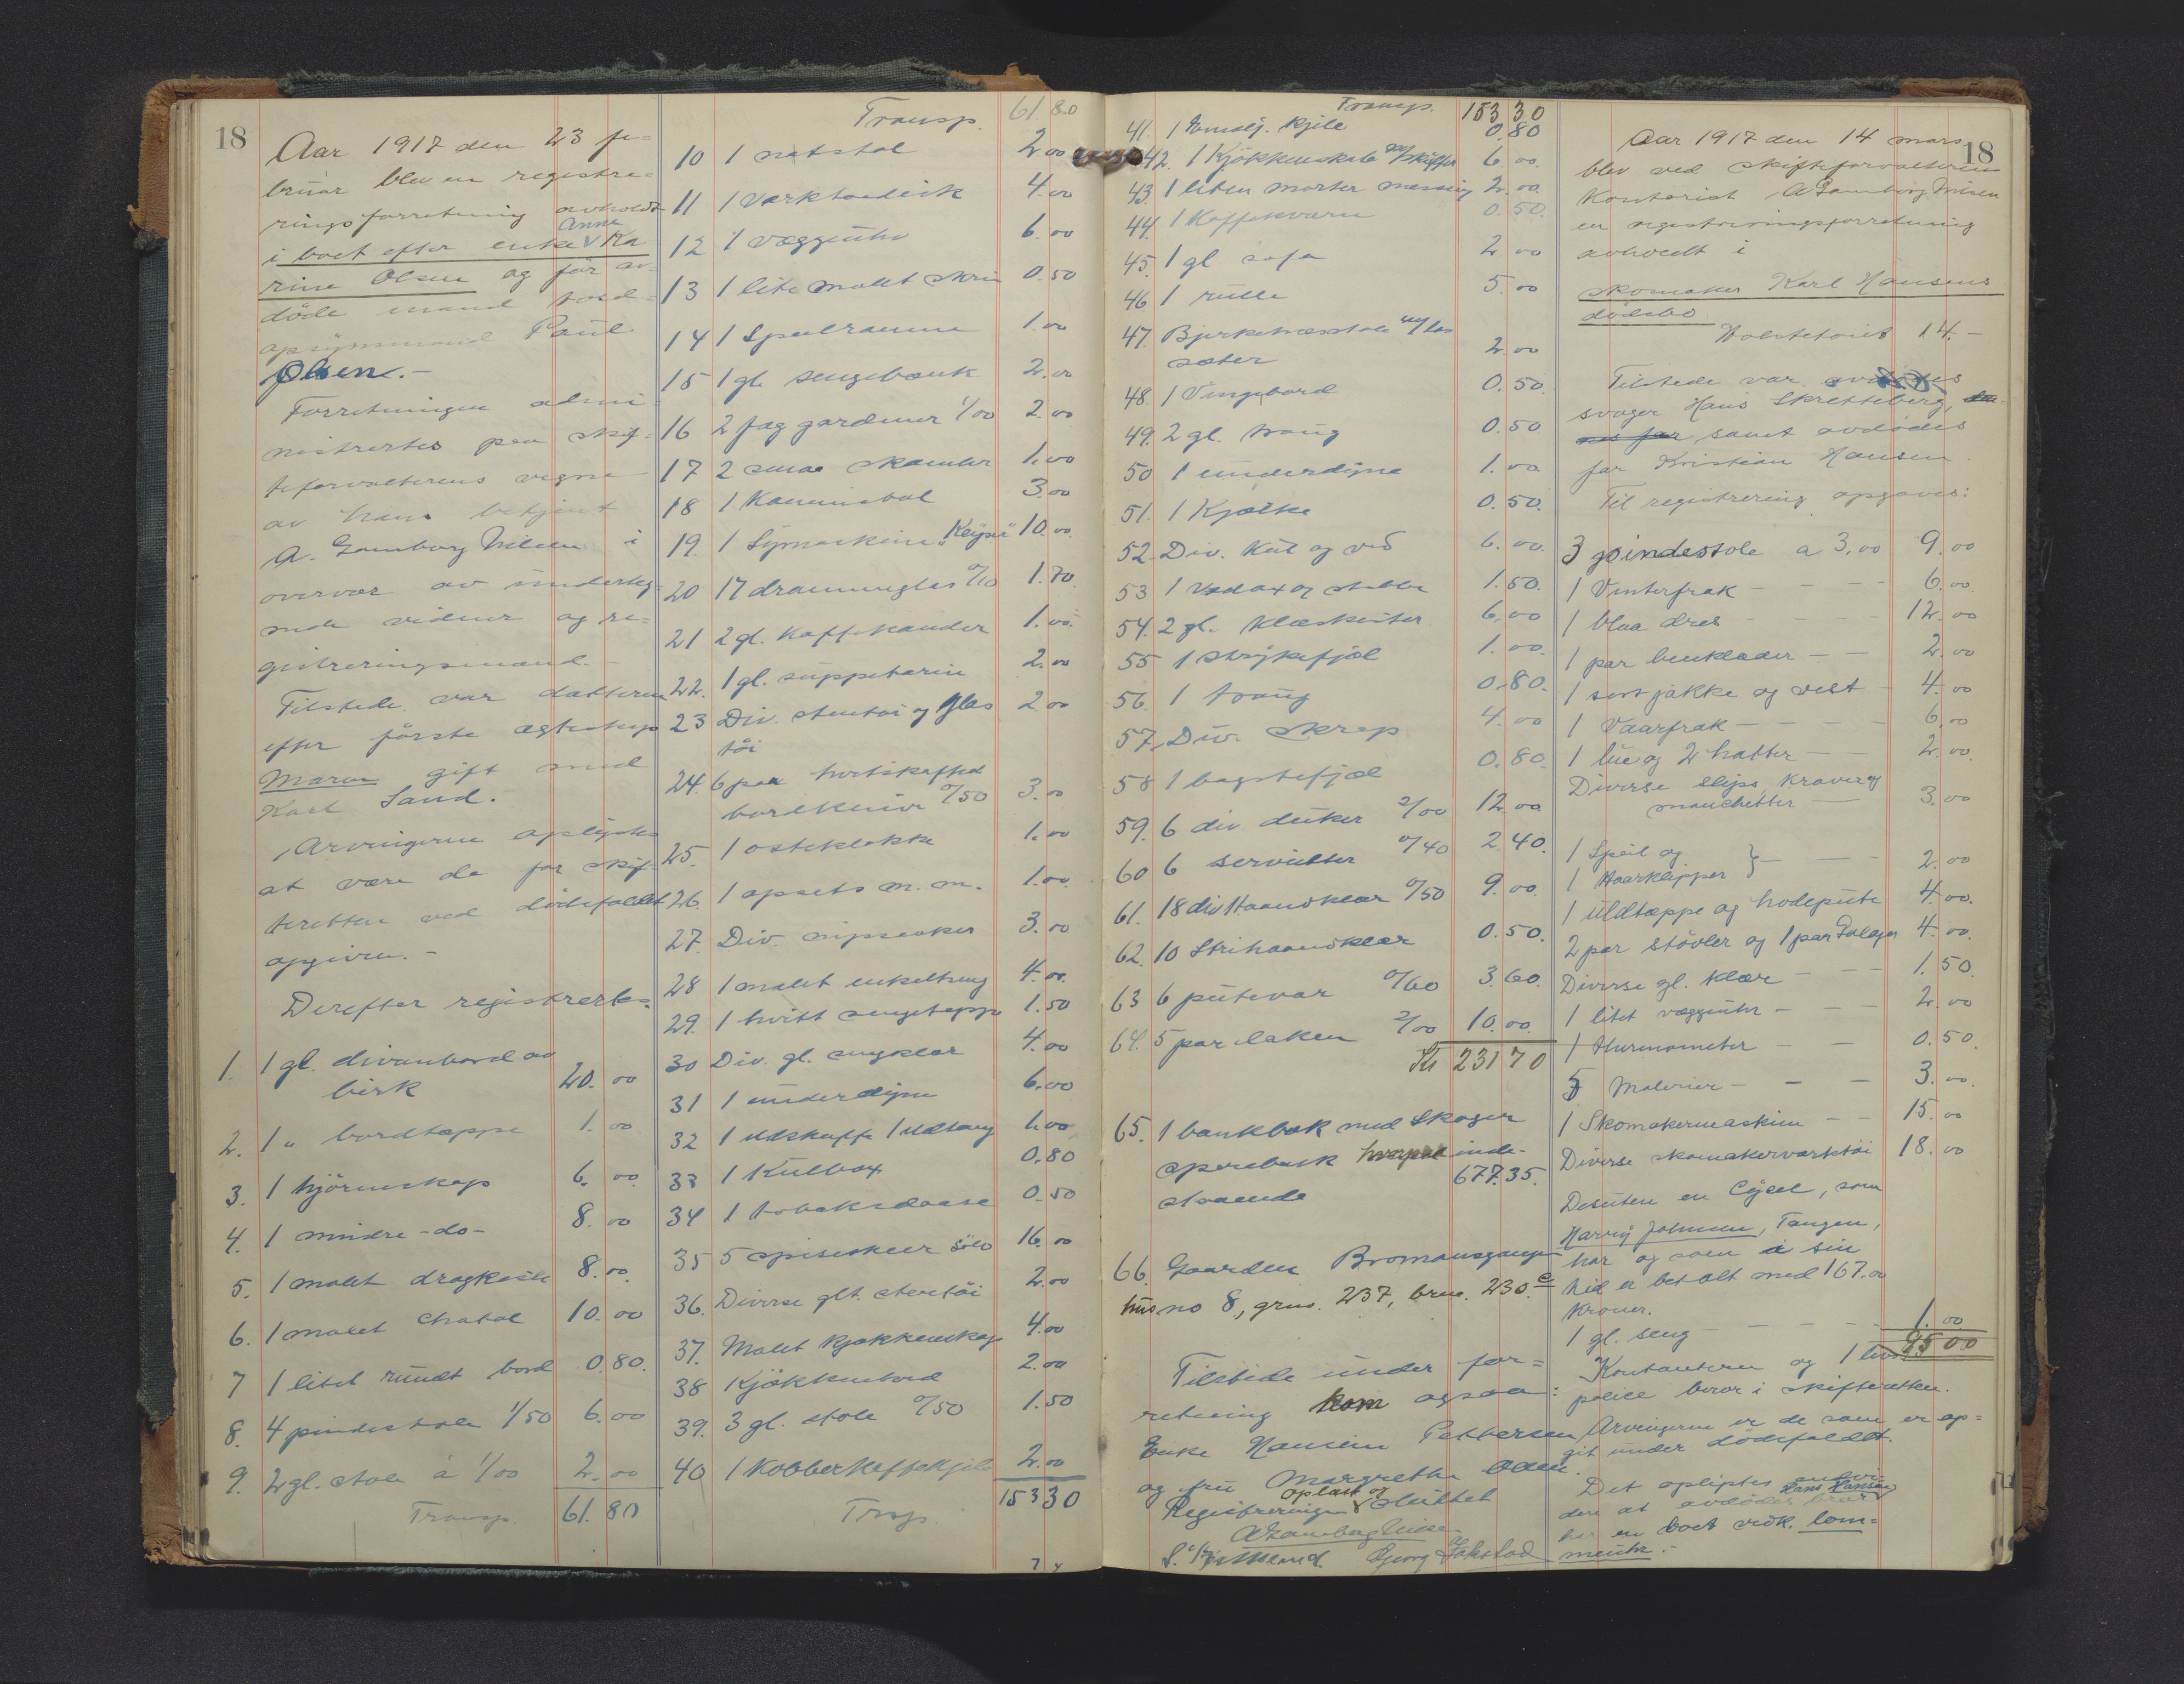 18
Aar 1917 den 23 fe=
bruar blev en registre=
ringsforretning avholdt
Anna
i boet efter enke Ka
rine Olsen og før av=
döde mand told=
opsynsmand Paul
Olsen.-
Forretningen admi
nistrertes paa skif=
teforvalterens vegne
av hans betjent
A. Gamborg Nilsen i
overvær av underteg-
nede vidner og re=
gistreringsmænd.-
Tilstede var datteren
efter første egteskap
Maren gift med
Karl Sand.
Arvingerne oplystes
at være de for skif-
teretten ved dödsfaldet
opgivne.-
Derefter registrertes:
1. 1 gl. divanbord av
birk 20.00
2. 1 " bordtæppe 1.00
3. 1 hjörneskap 6.00
4. 1 mindre -do- 8.00
5. 1 malet dragkiste 8.00
6. 1 malet chatol 10.00
7 1 litet rundt bord 0.80.
8. 4 pindestole 1/50 6.00
9. 2 gl. stole à 1/00 2.00
Transp. 61.80
Transp. 61.80
10 1 natstol 2.00
11 1 værktøidisk 4.00
12 1 væggeuhr 6.00
13 1 lite malet skrin 0.50
14 1 Speilramme 1.00
15 1 gl. sengebænk 2.00
16 2 fag gardiner 1/00 2.00
17 2 smaa skamler 1.00
18 1 Kaminstol 3.00
19. 1 Symaskine "Keyser" 10.00
20 17 dramneglas 0/10 1.70.
21 2 gl. kaffekander 1.00.
22. 1 gl. suppeterin 2.00
23 Div. stentøi og glas 2.00
töi
24. 6 par hvitskafted
bordkniver 0/50 3.00
25. 1 osteklokke 1.00
26. 1 opsets m. m. 1.00
27. Div. nipssaker 3.00
28 1 malet enkeltseng 4.00
29. 1 hvitt sengeteppe 1.50
30 Div. gl. sengklær 4.00
31 1 underdyne 6.00
32 1 ildskuffe 1 ildtang 1.00
33 1 Kulbox 0.80
34 1 tobaksdaase 0.50
35 5 spiseskeer sölv 16.00
36. Diverse glt. stentöi 2.00
37. Malet kjøkkenskap 4.00
38 Kjøkkenbord 2.00
39. 3 gl. stole 0/50 1.50
40 1 Kobberkaffekjele 2.00
Trsp. 153 30
Transp. 153 30
41. 1 Emalj. kjele 0.80
42. 1 Kjøkkenskale m/skuffer 6.00
43. 1 liten morter messing 2.00
44. 1 Kaffekvern 0.50.
45. 1 gl sofa 2.00
46 1 rulle 5.00
47. Bjerketræsstole
sæter 2.00
48. 1 Vingebord 0.50.
49. 2 gl. traug 0.50
50 1 underdyne 1.00
51. 1 Kjælke 0.50.
52. Div. kul og ved 6.00.
53 1 vedøx og stabbe 1.50.
54. 2 gl. klæskister 6.00
55 1 strykefjøl 1.00.
56. 1 traug 0.80.
57. Div. skrap 4.00
58 1 bagstefjøl 0.80.
59. 6 div. duker 2/00 12.00
60 6 servietter 0/40 2.40.
61. 18 div Haandklær 0/50 9.00.
62. 10 Strihaandklær 0.50.
63 6 putevar 0/60 3.60.
64. 5 par laken 2/00 10.00.
Kr 231 70
65. 1 bankbok med Skoger
sparebank hvorpaa inde-
staaende 677.35.
66. Gaarden Bromansgangen
hus no 8, grns. 237, brns. 230.c
Tilstede under for=
retning kom ogsaa:
Enke Hansine Pettersen
og fru Margrethe Olsen.
oplæst og
Registreringen sluttet
A Gamborg Nilsen
Georg Jakstad
18
Aar 1917 den 14 mars
blev ved skifteforvalteren
Kontorist A Gamborg Nilsen
en registreringsforretning
avholdt i
skomaker Karl Hansens
dødsbo
Tolstetoris 14.-
Tilstede var avdødes
svoger Hans Skretteberg,
samt avdødes
far Kristian Hansen
Til registrering opgaves:
3 pindestole a 3,00 9.00
1 Vinterfrak - - - 6.00
1 blaa dres - - - - 12.00
1 par benklæder - - 2.00
1 sort jakke og vest - 4.00
1 Vaarfrak - - - - 6.00
1 lue og 2 hatter - - 2.00.
Diverse slips, kraver og
manchetter - 3.00
1 Speil og
1 Haarklipper } - - - 2.00
1 Uldtæppe og hodepute 4.00.
2 par støvler og 1 par Galoger 4.00.
Diverse gl. klær - - - 1.50.
1 litet væggeuhr - - 2.00
1 thermometer - - 0.50.
5 Malerier - - - 3.00.
1 Skomakermaskin - - 15.00
Diverse skomakerværktøi 18.00
Desuten en Cykel, som
Harry Johnsen, Tangen,
har og som i sin
tid er betalt med 167.00
kroner.
1 gl. seng - - - - 1.00
95 00
Kontanterne og 1 livs
police beror i skifteretten.
Arvingerne er de som er op=
git under dödsfaldet.
Det oplystes endvi=
Hans Hansen
dere at avdødes bror
har en boet vedk. lom=
meuhr.-